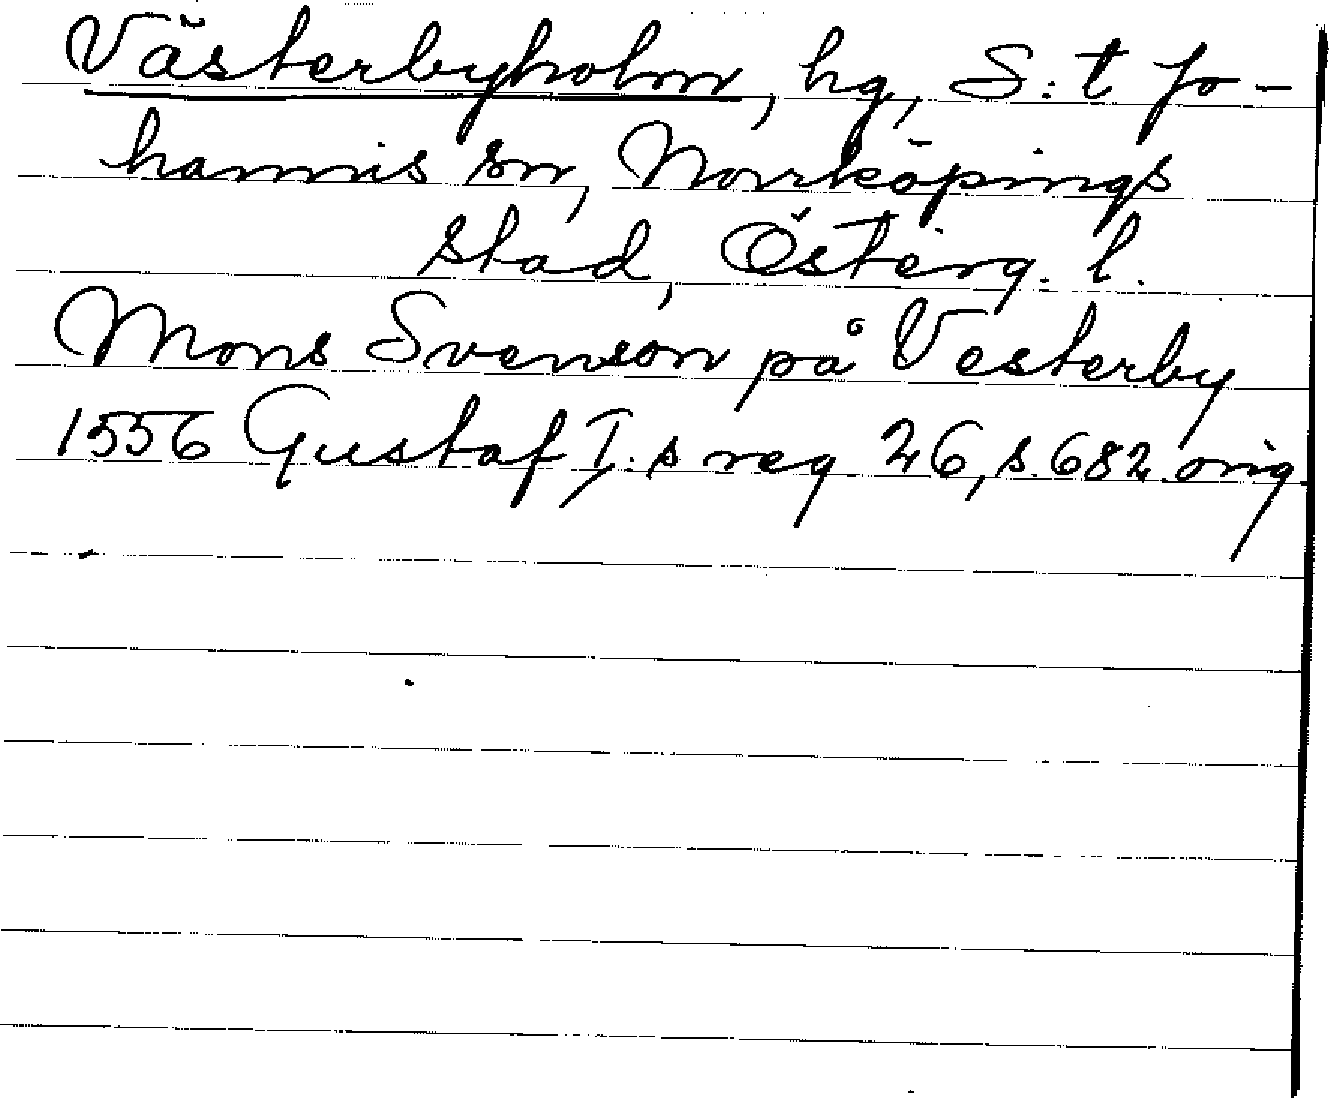 Västerbyholm, hg, S:t Jo-
hannis sn, Norrköpings
stad, Österg. l.
Mons Svenson på Vesterby
1556 Gustaf I:s reg 26, s. 682. orig.